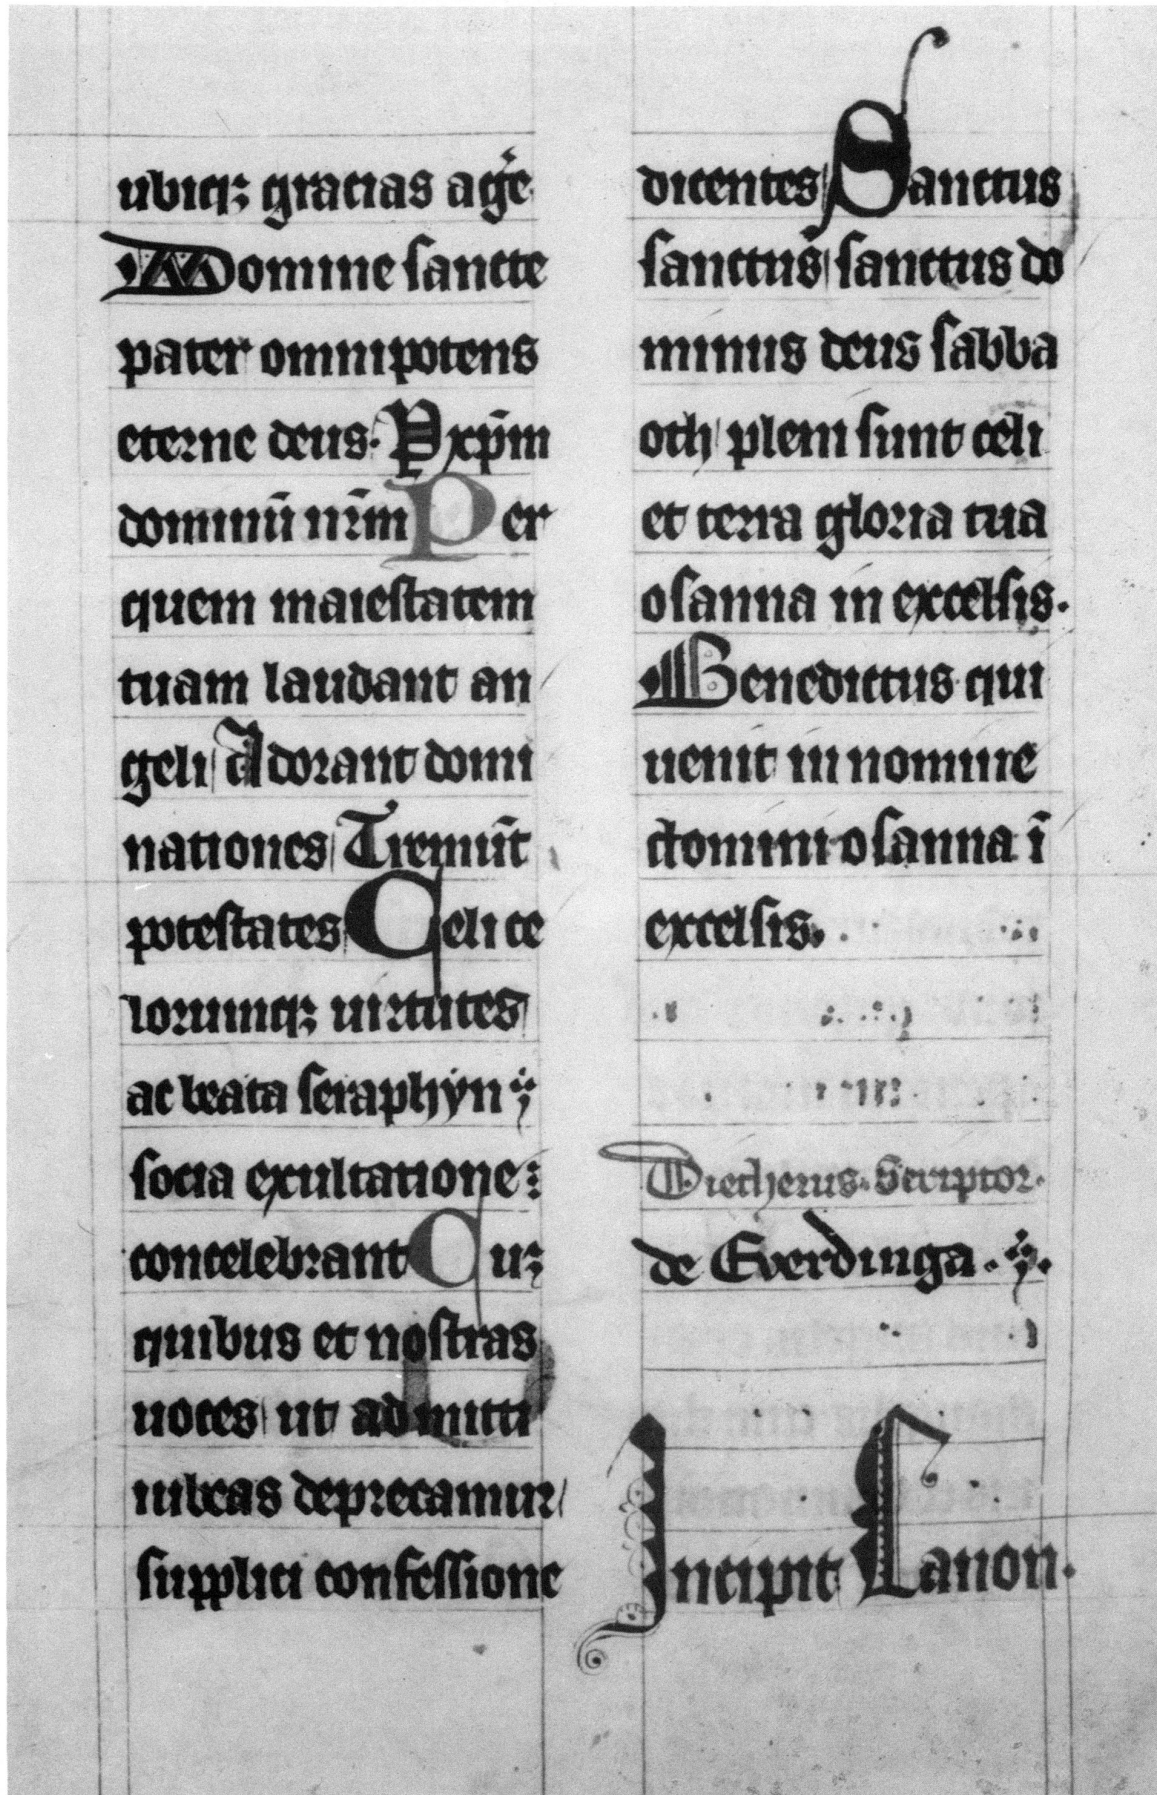 ubiqꝫ gracias agẽ
Domine sancte
pater omnipotens
eterne deus. P xp̄m
dominū nr̄m Per
quem maiestatem
tuam laudant an
geli Adorant domi
nationes Tremūt
potestates Celi ce
lorumqꝫ uirtutes
ac beata seraphyn
socia exultatione:
concelebrant Cuꝫ
quibus et nostras
uoces ut admitti
iubeas deprecamur
supplici confessione
dicentes Sanctus
sanctus sanctus do
minus deus sabba
oth pleni sunt celi
et terra gloria tua
osanna in excelsis.
Benedictus qui
uenit in nomine
domini osanna ī
excelsis.
Dietherus. Scriptor.
de Everdinga.
Incipit Canon.